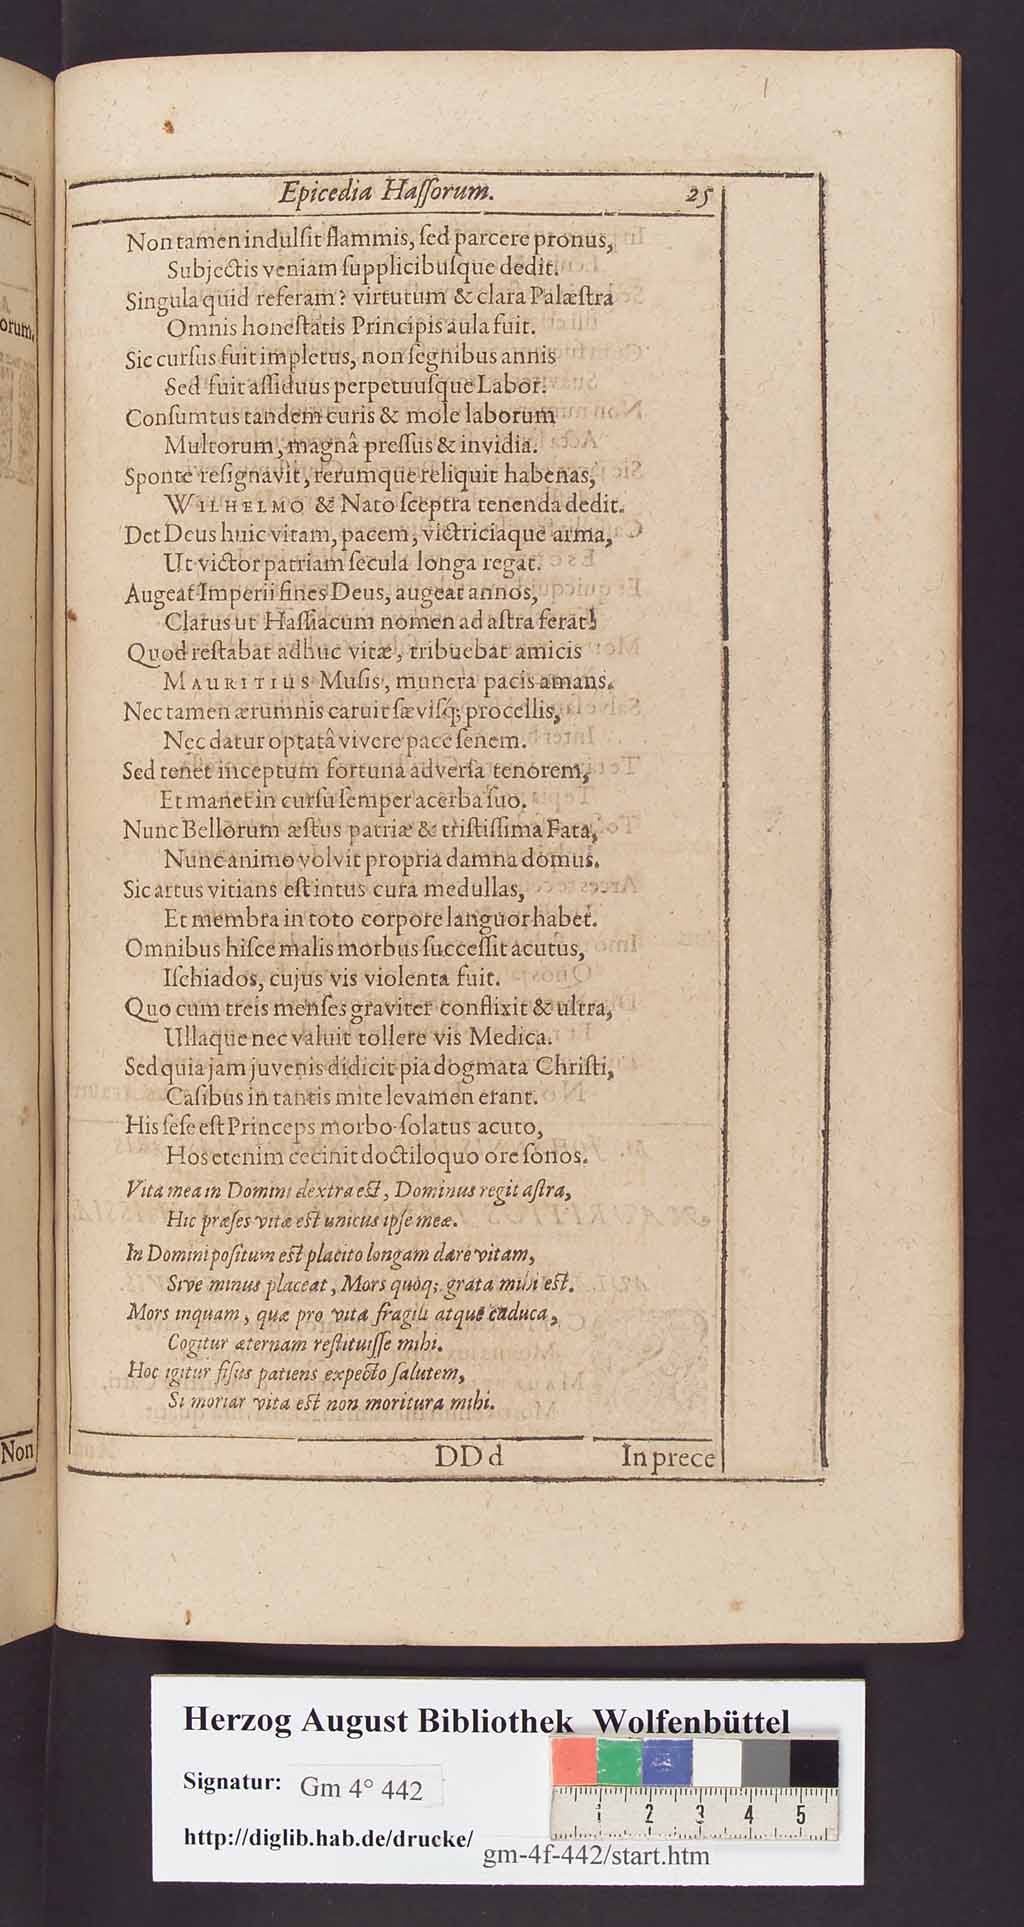 Epicedia Haſſorum. 25
Non tamen indulſit flammis, ſed parcere pronus,
Subjectis veniam ſupplicibuſque dedit.
Singula quid referam? virtutum & clara Palæſtra
Omnis honeſtatis Principis aula fuit.
Sic curſus fuit impletus, non ſegnibus annis
Sed fuit aſſiduus perpetuuſque Labor.
Conſumtus tandem curis & mole laborum
Multorum, magnâ preſſus & invidia.
Sponte reſignavit, rerumque reliquit habenas,
WILHELMO & Nato ſceptra tenenda dedit.
Det Deus huic vitam, pacem, victriciaque arma,
Ut victor patriam ſecula longa regat.
Augeat Imperii fines Deus, augeat annos,
Clarus ut Haſſiacum nomen ad aſtra ferat!
Quod reſtabat adhuc vitæ, tribuebat amicis
MAURITIUS Muſis, munera pacis amans.
Nec tamen ærumnis caruit ſæviſq; procellis,
Nec datur optatâ vivere pace ſenem.
Sed tenet inceptum fortuna adverſa tenorem,
Et manet in curſu ſemper acerba ſuo.
Nunc Bellorum æſtus patriæ & triſtiſſima Fata,
Nunc animo volvit propria damna domus.
Sic artus vitians eſt intus cura medullas,
Et membra in toto corpore languor habet.
Omnibus hiſce malis morbus ſucceſſit acutus,
Iſchiados, cujus vis violenta fuit.
Quo cum treis menſes graviter conflixit & ultra,
Ullaque nec valuit tollere vis Medica.
Sed quia jam juvenis didicit pia dogmata Chriſti,
Caſibus in tantis mite levamen erant.
His ſeſe eſt Princeps morbo ſolatus acuto,
Hos etenim cecinit doctiloquo ore ſonos.
Vita mea in Domini dextra eſt, Dominus regit aſtra,
Hic præſes vitæ eſt unicus ipſe meæ.
In Domini poſitum eſt placito longam dare vitam,
Sive minus placeat, Mors quòq; grata mihi eſt.
Mors inquam, quæ pro vita fragili atque caduca,
Cogitur æternam reſtituiſſe mihi.
Hoc igitur fiſus patiens expecto ſalutem,
Si moriar vita eſt non moritura mihi.
DDd In prece
orum.
Non
Herzog August Bibliothek Wolfenbüttel
Signatur: Gm 4° 442
http://diglib.hab.de/drucke/ gm-4f-442/start.htm
1 2 3 4 5